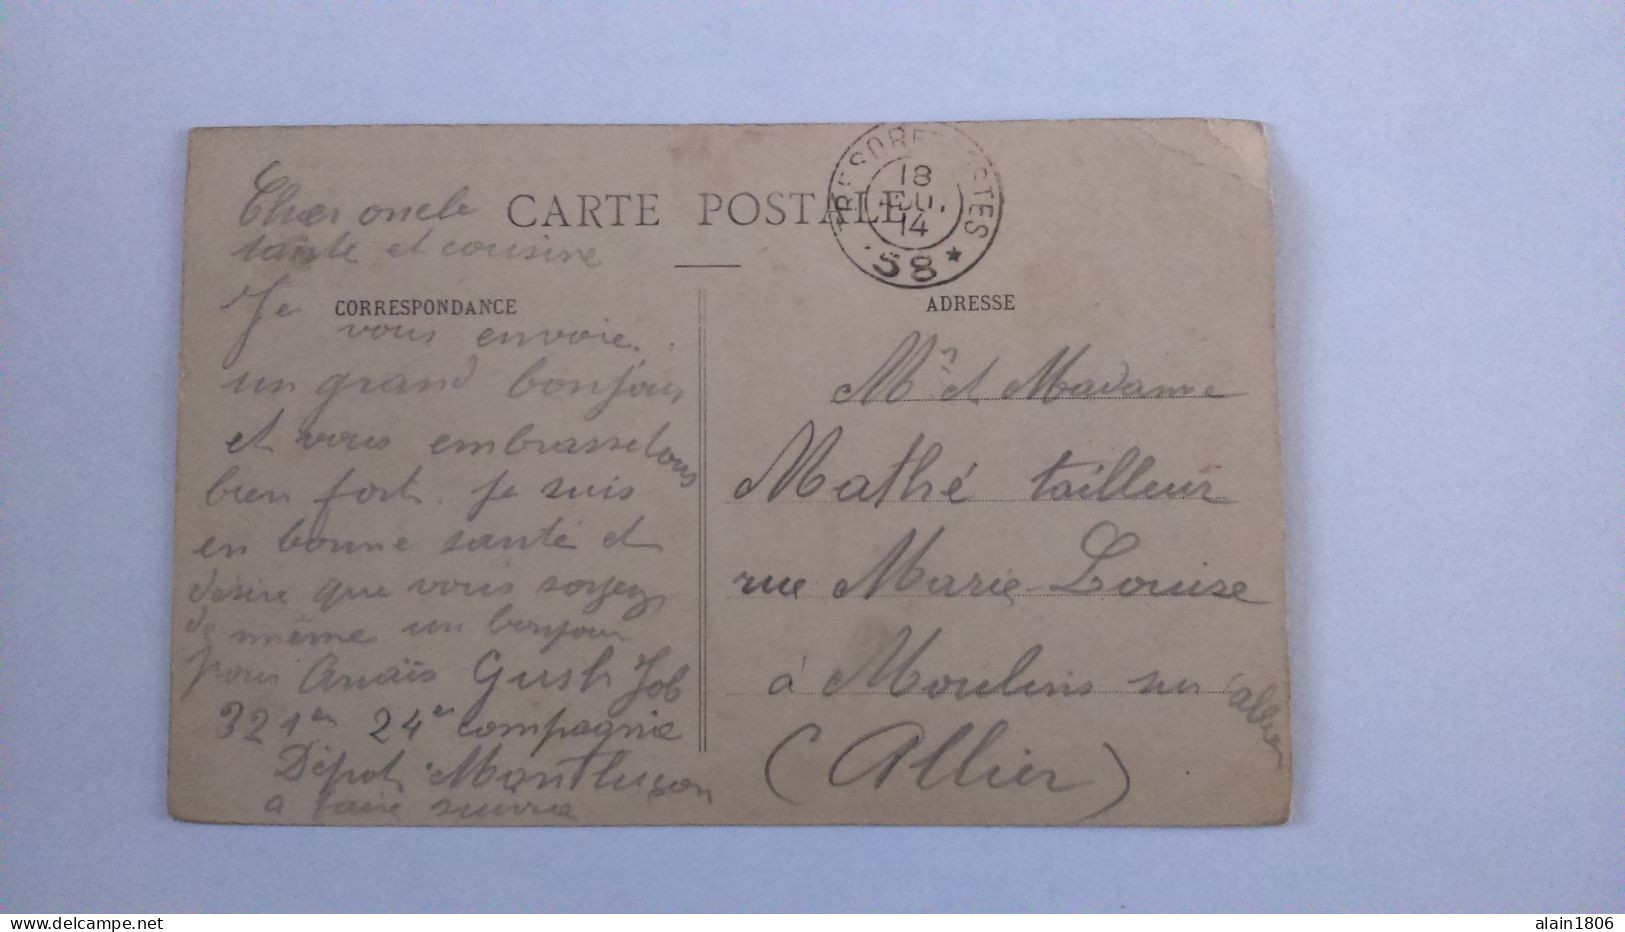 CARTE POSTALE
TRESOR ET POSTES
18
AOU.
14
58
CORRESPONDANCE
Cher oncle
tante et cousine
Je
vous envoie
un grand bonjour
et vous embrasse tous
bien fort. Je suis
en bonne santé et
désire que vous soyez
de même un bonjour
pour Anaïs Gust Job
321em 24em compagnie
Dépot Montluçon
a faire suivre
ADRESSE
Mr et Madame
Mathé tailleur
rue Marie-Louise
à Moulins sur allier
(Allier)
delcampe.net
alain1806